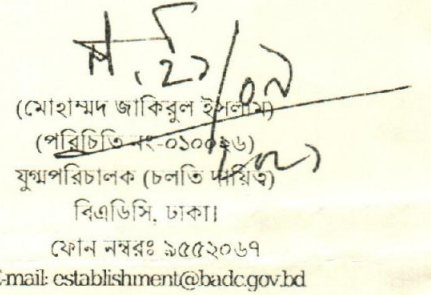 (মোহাম্মদ জাকিরুল ইসলাম)
(পরিচিতি নং-০১০০২৬)
যুগ্মপরিচালক (চলতি দায়িত্ব)
বিএডিসি, ঢাকা।
ফোন নম্বরঃ ৯৫৫২০৬৭
E-mail: establishment@badc.gov.bd